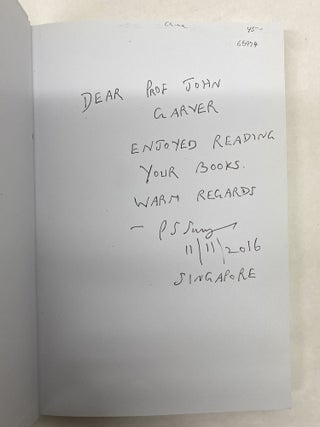 45-
DEAR PROF JOHN
GARVER
ENJOYED READING
YOUR BOOKS.
WARM REGARDS
- P S
11/11/2016
SINGAPORE